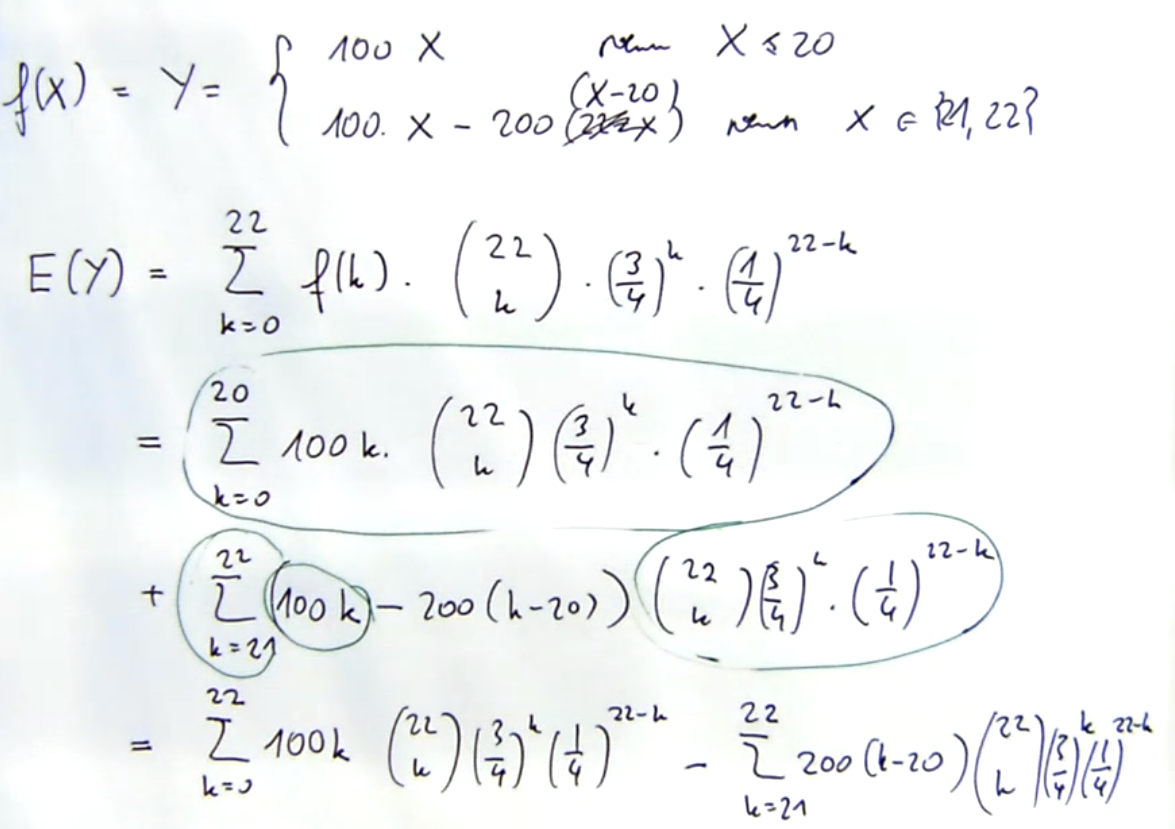 f(x) = Y = { 100 X wenn X ≤ 20
(X-20)
100. X - 200 ( ) wenn X ∈ {21, 22}
E(Y) = ∑_{k=0}^{22} f(k) · (22 k) · (3/4)^k · (1/4)^{22-k}
= ∑_{k=0}^{20} 100 k. (22 k) (3/4)^k · (1/4)^{22-k}
+ ∑_{k=21}^{22} (100 k - 200 (k-20)) (22 k) (3/4)^k · (1/4)^{22-k}
= ∑_{k=0}^{22} 100k (22 k) (3/4)^k (1/4)^{22-k} - ∑_{k=21}^{22} 200 (k-20) (22 k) (3/4)^k (1/4)^{22-k}